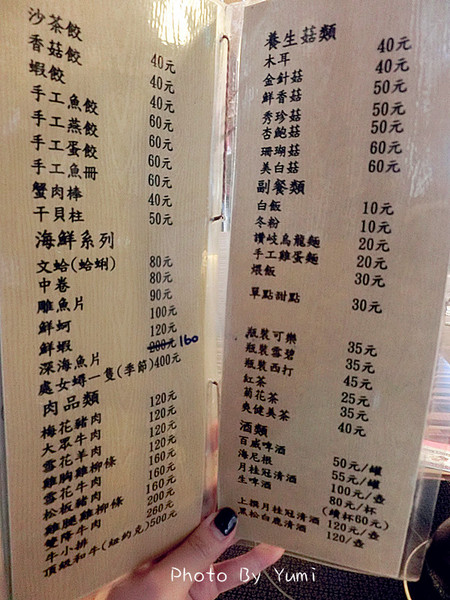 沙茶餃 40元
香菇餃 40元
蝦餃 40元
手工魚餃 60元
手工燕餃 60元
手工蛋餃 60元
手工魚冊 60元
蟹肉棒 40元
干貝柱 50元
海鮮系列
文蛤(蛤蜊) 80元
中卷 80元
雕魚片 90元
鮮蚵 100元
鮮蝦 120元
深海魚片 200元 160
處女蟳一隻(季節)400元
肉品類
梅花豬肉 120元
大眾牛肉 120元
雪花羊肉 120元
雞胸雞柳條 120元
雪花牛肉 160元
松板豬肉 160元
雞腿雞柳條 160元
雙降牛肉 200元
牛小排 260元
頂級和牛(紐約克)500元
養生菇類
木耳 40元
金針菇 40元
鮮香菇 50元
秀珍菇 50元
杏鮑菇 50元
珊瑚菇 60元
美白菇 60元
副餐類
白飯 10元
冬粉 10元
讚岐烏龍麵 20元
手工雞蛋麵 20元
煨飯 30元
單點甜點 30元
瓶裝可樂 35元
瓶裝雪碧 35元
瓶裝西打 45元
紅茶 25元
菊花茶 35元
爽健美茶 40元
酒類
百威啤酒 50元/罐
海尼根 55元/罐
月桂冠清酒 100元/壺
生啤酒 80元/杯
(續杯60元)
上撰月桂冠清酒 120元/壺
黑松白鹿清酒 120/壺
Photo By Yumi